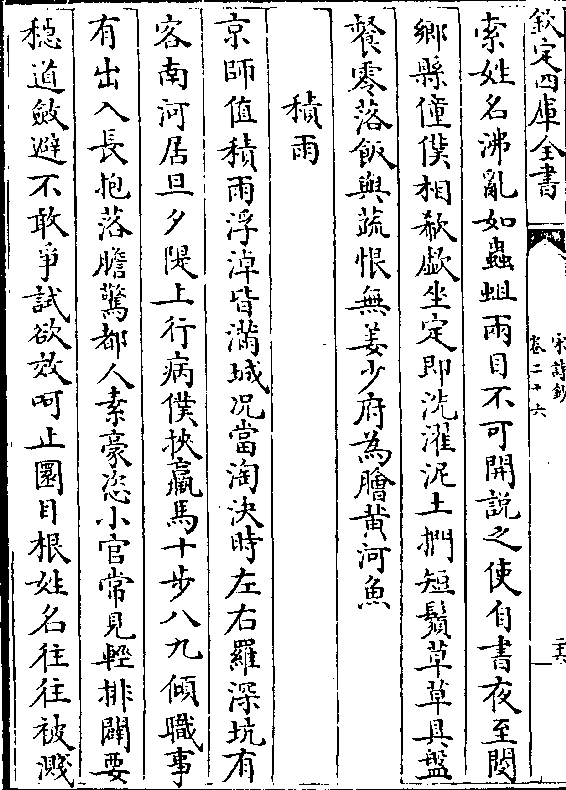 欽定四庫全書
宋詩鈔
卷二十六
索姓名沸亂如蟲蛆兩目不可開説之使自書夜至閿
鄉縣僮僕相欷歔坐定即洗濯泥土捫短鬚草草具盤
餐零落飯與蔬恨無姜少府為膾黄河魚
積雨
京師值積雨浮淖皆滿城况當淘決時左右羅深坑有
客南河居旦夕隄上行病僕挾羸馬十步八九傾職事
有出入長抱落膽驚都人素豪恣小官常見輕排闢要
穏道斂避不敢爭試欲效呵止圜目根姓名往往被濺